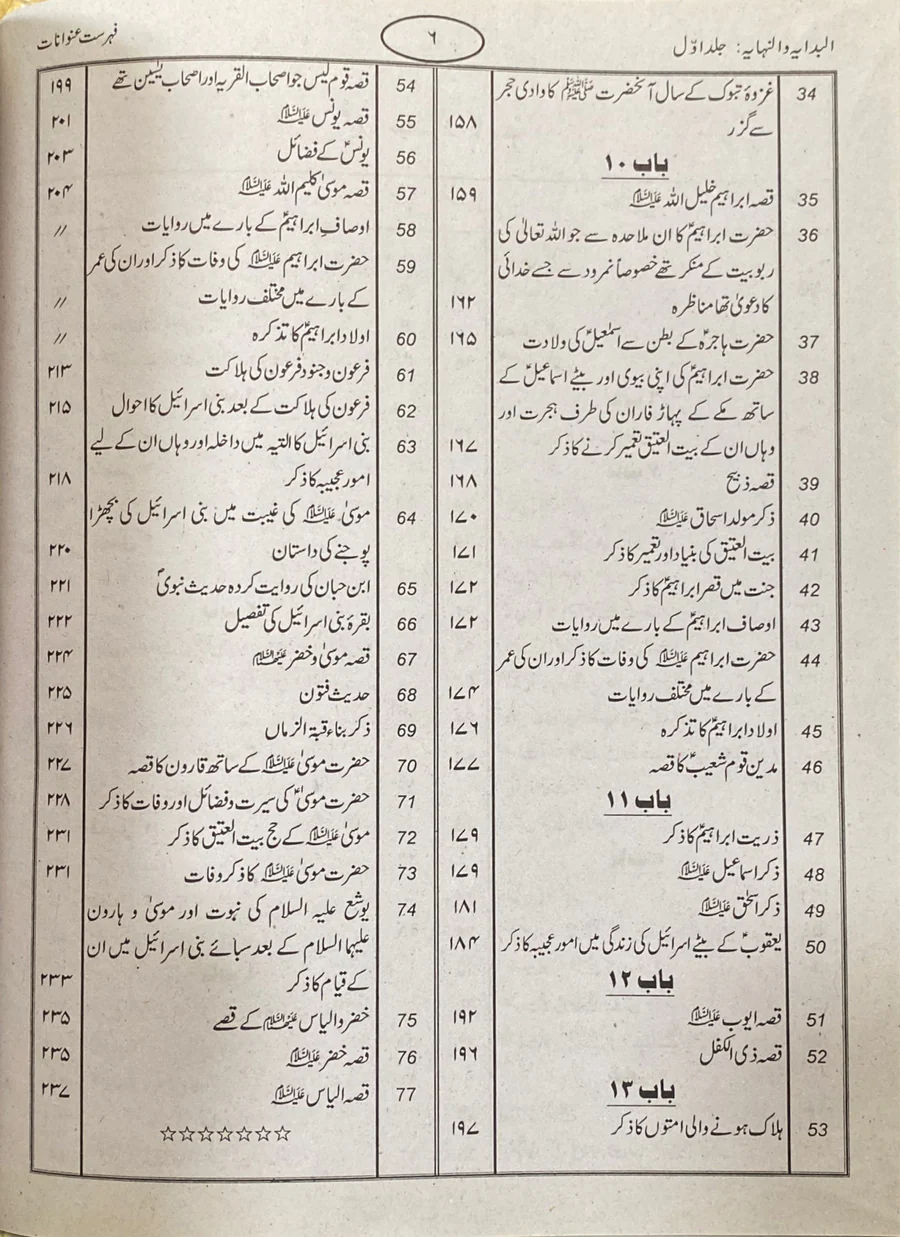 البدایہ والنہایہ: جلد اوّل
۶
فہرست عنوانات
34 غزوۂ تبوک کے سال آنحضرت ﷺ کا وادی حجر
سے گزر ۱۵۸
باب ۱۰
35 قصہ ابراہیم خلیل اللہ علیہ السلام ۱۵۹
36 حضرت ابراہیمؑ کا ان ملاحدہ سے جو اللہ تعالیٰ کی
ربوبیت کے منکر تھے خصوصاً نمرود سے جسے خدائی
کا دعویٰ تھا مناظرہ ۱۶۲
37 حضرت ہاجرہؑ کے بطن سے اسمٰعیلؑ کی ولادت ۱۶۵
38 حضرت ابراہیمؑ کی اپنی بیوی اور بیٹے اسماعیلؑ کے
ساتھ مکے کے پہاڑ فاران کی طرف ہجرت اور
وہاں ان کے بیت العتیق تعمیر کرنے کا ذکر ۱۶۷
39 قصہ ذبیح ۱۶۸
40 ذکر مولد اسحاق علیہ السلام ۱۷۰
41 بیت العتیق کی بنیاد اور تعمیر کا ذکر ۱۷۱
42 جنت میں قصر ابراہیمؑ کا ذکر ۱۷۲
43 اوصاف ابراہیمؑ کے بارے میں روایات ۱۷۲
44 حضرت ابراہیم علیہ السلام کی وفات کا ذکر اور ان کی عمر
کے بارے میں مختلف روایات ۱۷۴
45 اولاد ابراہیمؑ کا تذکرہ ۱۷۶
46 مدین قوم شعیبؑ کا قصہ ۱۷۷
باب ۱۱
47 ذریت ابراہیمؑ کا ذکر ۱۷۹
48 ذکر اسماعیل علیہ السلام ۱۷۹
49 ذکر اسحٰق علیہ السلام ۱۸۱
50 یعقوبؑ کے بیٹے اسرائیل کی زندگی میں امور عجیبہ کا ذکر ۱۸۴
باب ۱۲
51 قصہ ایوب علیہ السلام ۱۹۲
52 قصہ ذی الکفل ۱۹۶
باب ۱۳
53 ہلاک ہونے والی امتوں کا ذکر ۱۹۷
54 قصہ قوم یٰس جو اصحاب القریہ اور اصحاب یٰسین تھے ۱۹۹
55 قصہ یونس علیہ السلام ۲۰۱
56 یونسؑ کے فضائل ۲۰۳
57 قصہ موسیٰ کلیم اللہ علیہ السلام ۲۰۴
58 اوصافِ ابراہیمؑ کے بارے میں روایات //
59 حضرت ابراہیم علیہ السلام کی وفات کا ذکر اور ان کی عمر
کے بارے میں مختلف روایات //
60 اولاد ابراہیمؑ کا تذکرہ //
61 فرعون و جنود فرعون کی ہلاکت ۲۱۳
62 فرعون کی ہلاکت کے بعد بنی اسرائیل کا احوال ۲۱۵
63 بنی اسرائیل کا التیہ میں داخلہ اور وہاں ان کے لیے
امور عجیبہ کا ذکر ۲۱۸
64 موسیٰ علیہ السلام کی غیبت میں بنی اسرائیل کی بچھڑا
پوجنے کی داستان ۲۲۰
65 ابن حبان کی روایت کردہ حدیث نبویؐ ۲۲۱
66 بقرۂ بنی اسرائیل کی تفصیل ۲۲۲
67 قصہ موسیٰ و خضر علیہما السلام ۲۲۴
68 حدیث فتون ۲۲۵
69 ذکر بناء قبۃ الزماں ۲۲۶
70 حضرت موسیٰ علیہ السلام کے ساتھ قارون کا قصہ ۲۲۷
71 حضرت موسیٰؑ کی سیرت و فضائل اور وفات کا ذکر ۲۲۸
72 موسیٰ علیہ السلام کے حج بیت العتیق کا ذکر ۲۳۱
73 حضرت موسیٰ علیہ السلام کا ذکر وفات ۲۳۱
74 یوشع علیہ السلام کی نبوت اور موسیٰ و ہارون
علیہما السلام کے بعد سبائے بنی اسرائیل میں ان
کے قیام کا ذکر ۲۳۳
75 خضر و الیاس علیہما السلام کے قصے ۲۳۵
76 قصہ خضر علیہ السلام ۲۳۵
77 قصہ الیاس علیہ السلام ۲۳۷
☆☆☆☆☆☆☆